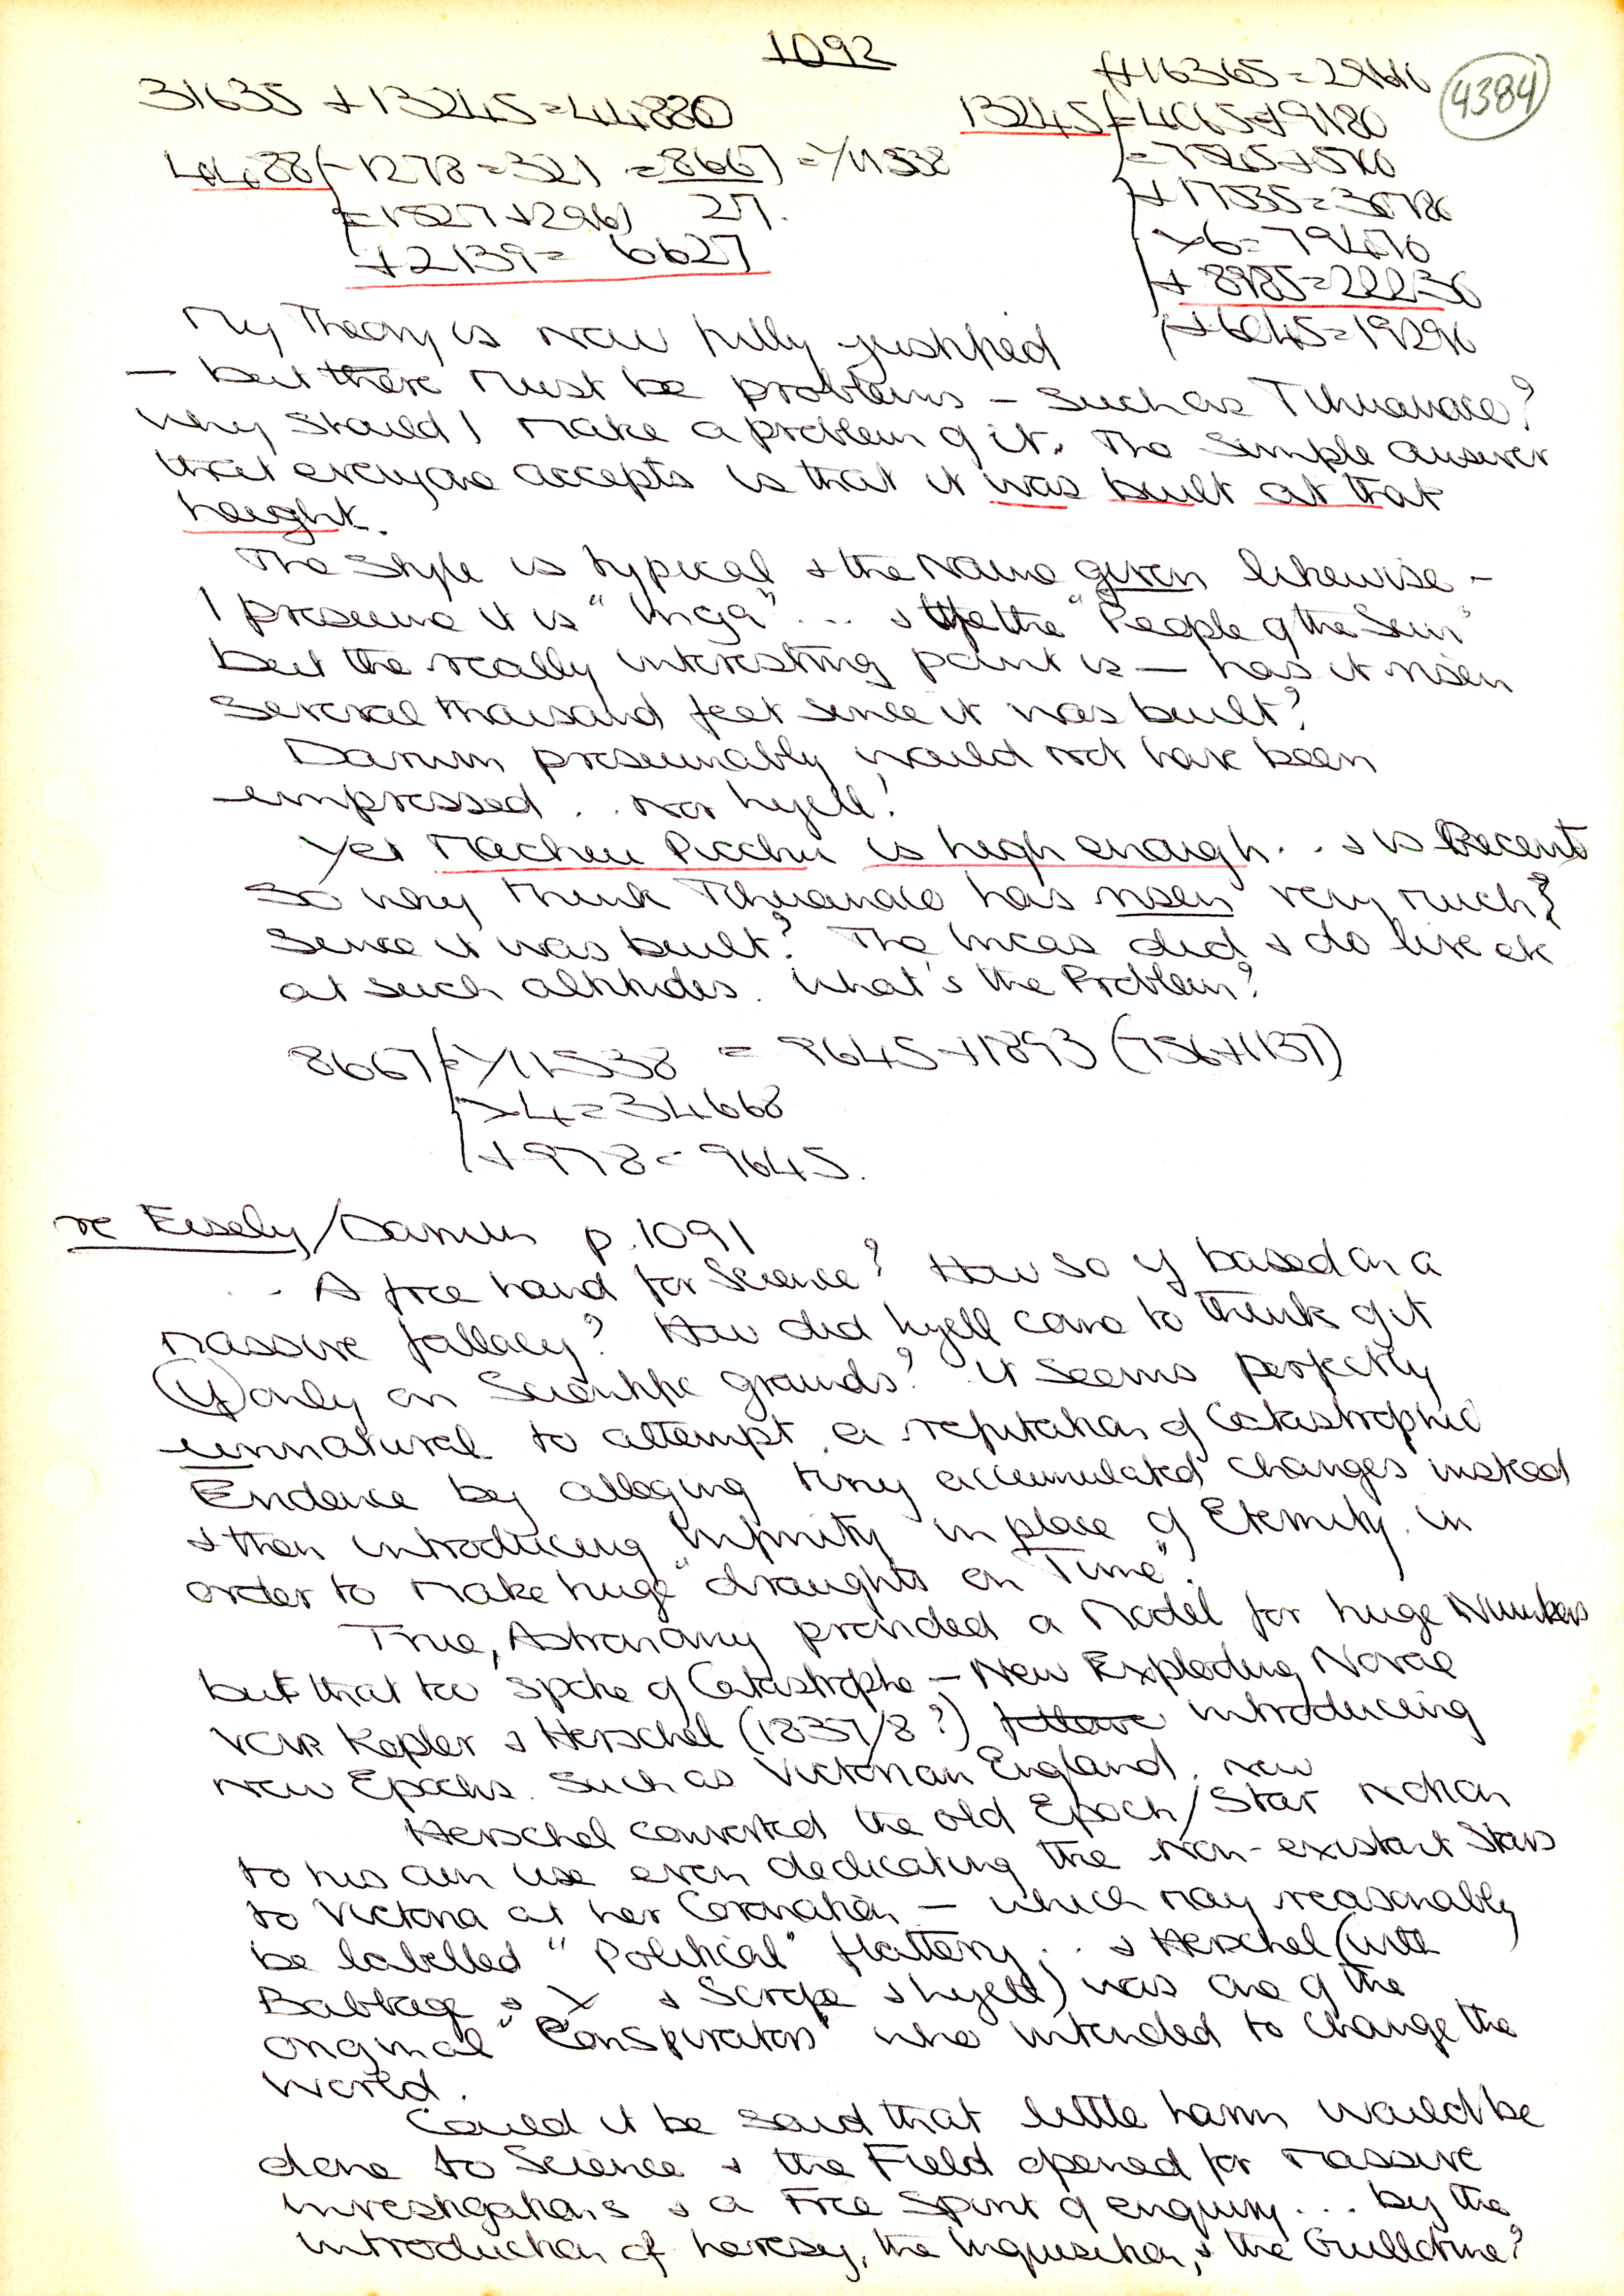 1092
4384
31635 + 13245 = 44880
+16365 = 29616
13245 = 4065 + 9180
4488 - 1278 = 321 = 8667 = 7/11538
27.
= 1527 + 2961
+ 2139 = 6627
+ 17535 = 30780
× 6 = 79470
+ 8985 = 22230
+ 6045 = 19290
My Theory is now fully justified
— but there must be problems — such as Tihuanaco?
Why should I make a problem of it. The simple answer
that everyone accepts is that it was built at that
height.
The style is typical & the Name given likewise —
I presume it is "Inga" ... & the "People of the Sun"
but the really interesting point is — has it risen
several thousand feet since it was built?
Darwin presumably would not have been
impressed . . nor Lyell!
Yet Machu Picchu is high enough . . & is Recent
So why think Tihuanaco has risen very much?
since it was built? The Incas did & do live ok
at such altitudes. What's the Problem?
8667 = 7/11538 = 9645 + 1893 (756+1137)
× 4 = 34668
+ 978 = 9645.
re Eisely/Darwin p.1091
. . A free hand for Science? How so if based on a
massive fallacy? How did Lyell come to think of it
(if) only on Scientific grounds? It seems perfectly
unnatural to attempt a refutation of Catastrophic
Evidence by alleging tiny accumulated changes instead
& then introducing Infinity in place of Eternity in
order to make huge "draughts on Time".
True, Astronomy provided a Model for huge Numbers
but that too spoke of Catastrophe — New Exploding Novae
Kepler & Herschel (1837/8?) introducing
New Epochs. Such as Victorian England. new
Herschel converted the old Epoch/Star notion
to his own use even dedicating the non-existant Stars
to Victoria at her Coronation — which may reasonably
be labelled "Political" flattery . . & Herschel (with
Babbage & X & Scrope & Lyell) was one of the
original "Conspirators" who intended to change the
World.
Could it be said that little harm would be
done to Science & the Field opened for massive
Investigations & a Free Spirit of enquiry ... by the
introduction of heresy, the Inquisition, & the Guillotine?